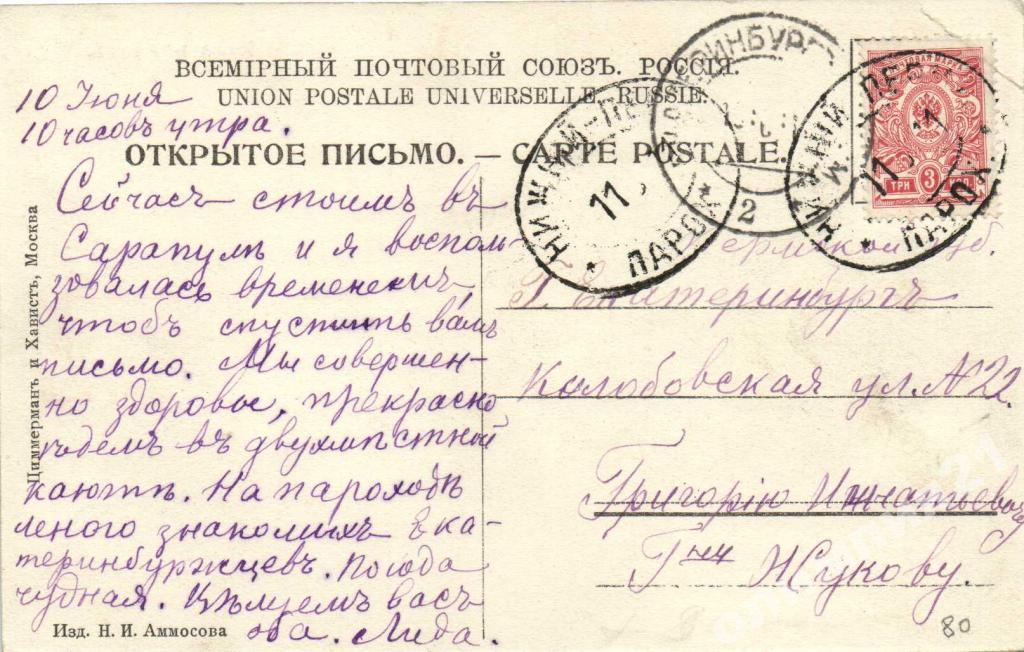 ВСЕМІРНЫЙ ПОЧТОВЫЙ СОЮЗЪ. РОССІЯ.
UNION POSTALE UNIVERSELLE. RUSSIE.
ОТКРЫТОЕ ПИСЬМО. — CARTE POSTALE.
10 Июня
10 часовъ утра.
Сейчасъ стоимъ въ
Сарапулѣ и я восполь-
зовалась временемъ
чтобъ спустить вамъ
письмо. Мы совершен-
но здоровы, прекрасно
ѣдемъ въ двухмѣстной
каютѣ. На пароходѣ
много знакомыхъ Ека-
теринбуржцевъ. Погода
чудная. Цѣлуемъ васъ
оба. Лида.
Пермской губ.
Г. Екатеринбургъ
Колобовская ул. № 22.
Григорію Игнатьевичу
Гну Жукову.
Циммерманъ и Хавистъ, Москва
Изд. Н. И. Аммосова
НИЖНІЙ-ПЕ
11
* ПАРОХ
РИНБУРГ
2
НИЖНІЙ ПЕ
11
* ПАРОХ.
ТРИ 3 КОП
80